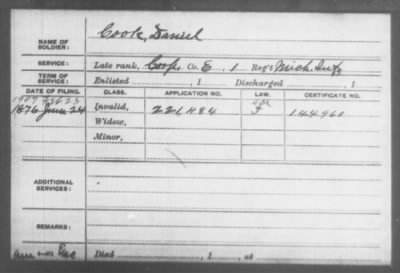 NAME OF SOLDIER: Cook, Daniel
SERVICE: Late rank, Corp. Co. E, 1 Reg't Mich. Inf
TERM OF SERVICE: Enlisted , 1 Discharged , 1
DATE OF FILING. CLASS. APPLICATION NO. LAW. CERTIFICATE NO.
1876 June 24 Invalid, 221484 144960
Widow,
Minor,
ADDITIONAL SERVICES:
REMARKS:
Died , 1 , at